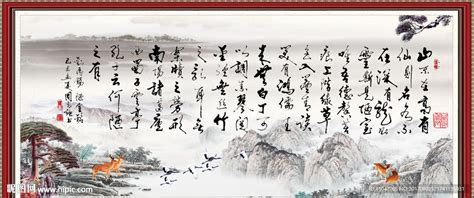 山不在高有
仙则名水不
在深有龙则
灵斯是陋室
惟吾德馨苔
痕上阶绿草色
入帘青谈笑
有鸿儒往来
无白丁可以
调素琴阅金经
无丝竹
之乱耳无
案牍之劳形
南阳诸葛庐
西蜀子云亭
孔子云何陋
之有
刘禹锡 陋室铭
昵图网
www.nipic.com